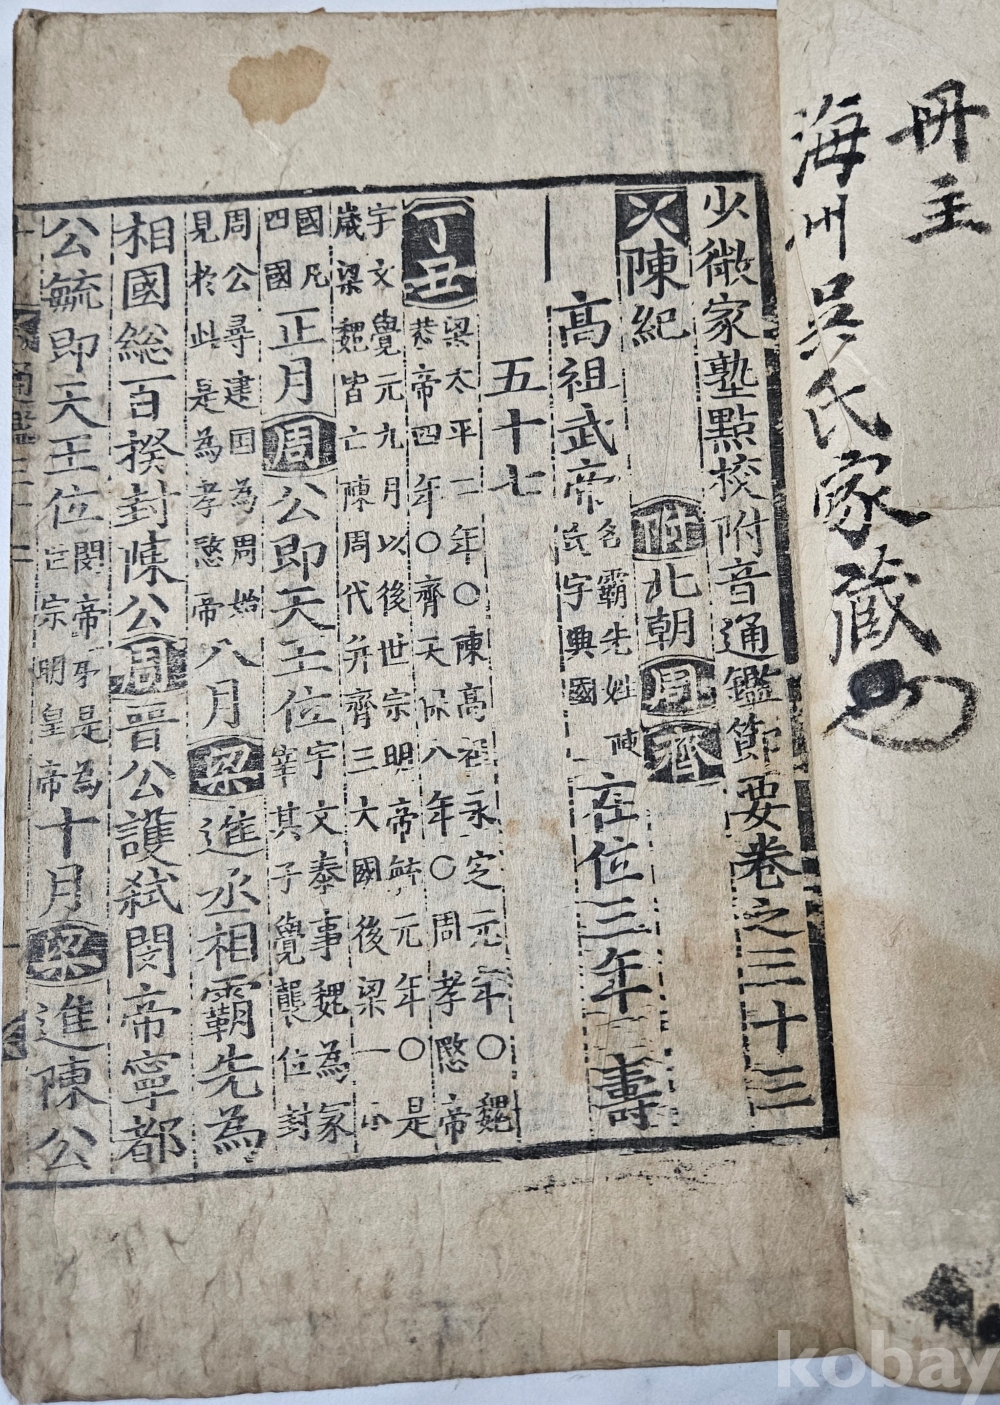 冊主
海州吳氏家藏
少微家塾點校附音通鑑節要卷之三十三
陳紀 附 北朝 周 齊
高祖武帝 名霸先姓陳 氏字興國 在位三年 壽
五十七
丁丑 梁太平二年〇陳高祖永定元年〇魏
恭帝四年〇齊天保八年〇周孝愍帝
宇文覺元九月以後世宗明帝毓元年〇是
歲梁魏皆亡陳周代并齊三大國後梁一小
國凡
四國 正月 周 公即天王位 宇文泰事魏為冢
宰其子覺襲位封
周公尋建国為周始
見於此是為孝愍帝 八月 梁 進丞相霸先為
相國総百揆封陳公 周 晋公護弑閔帝寧都
公毓即天王位 閔帝弟是為
世宗明皇帝 十月 梁 進陳公
kobay